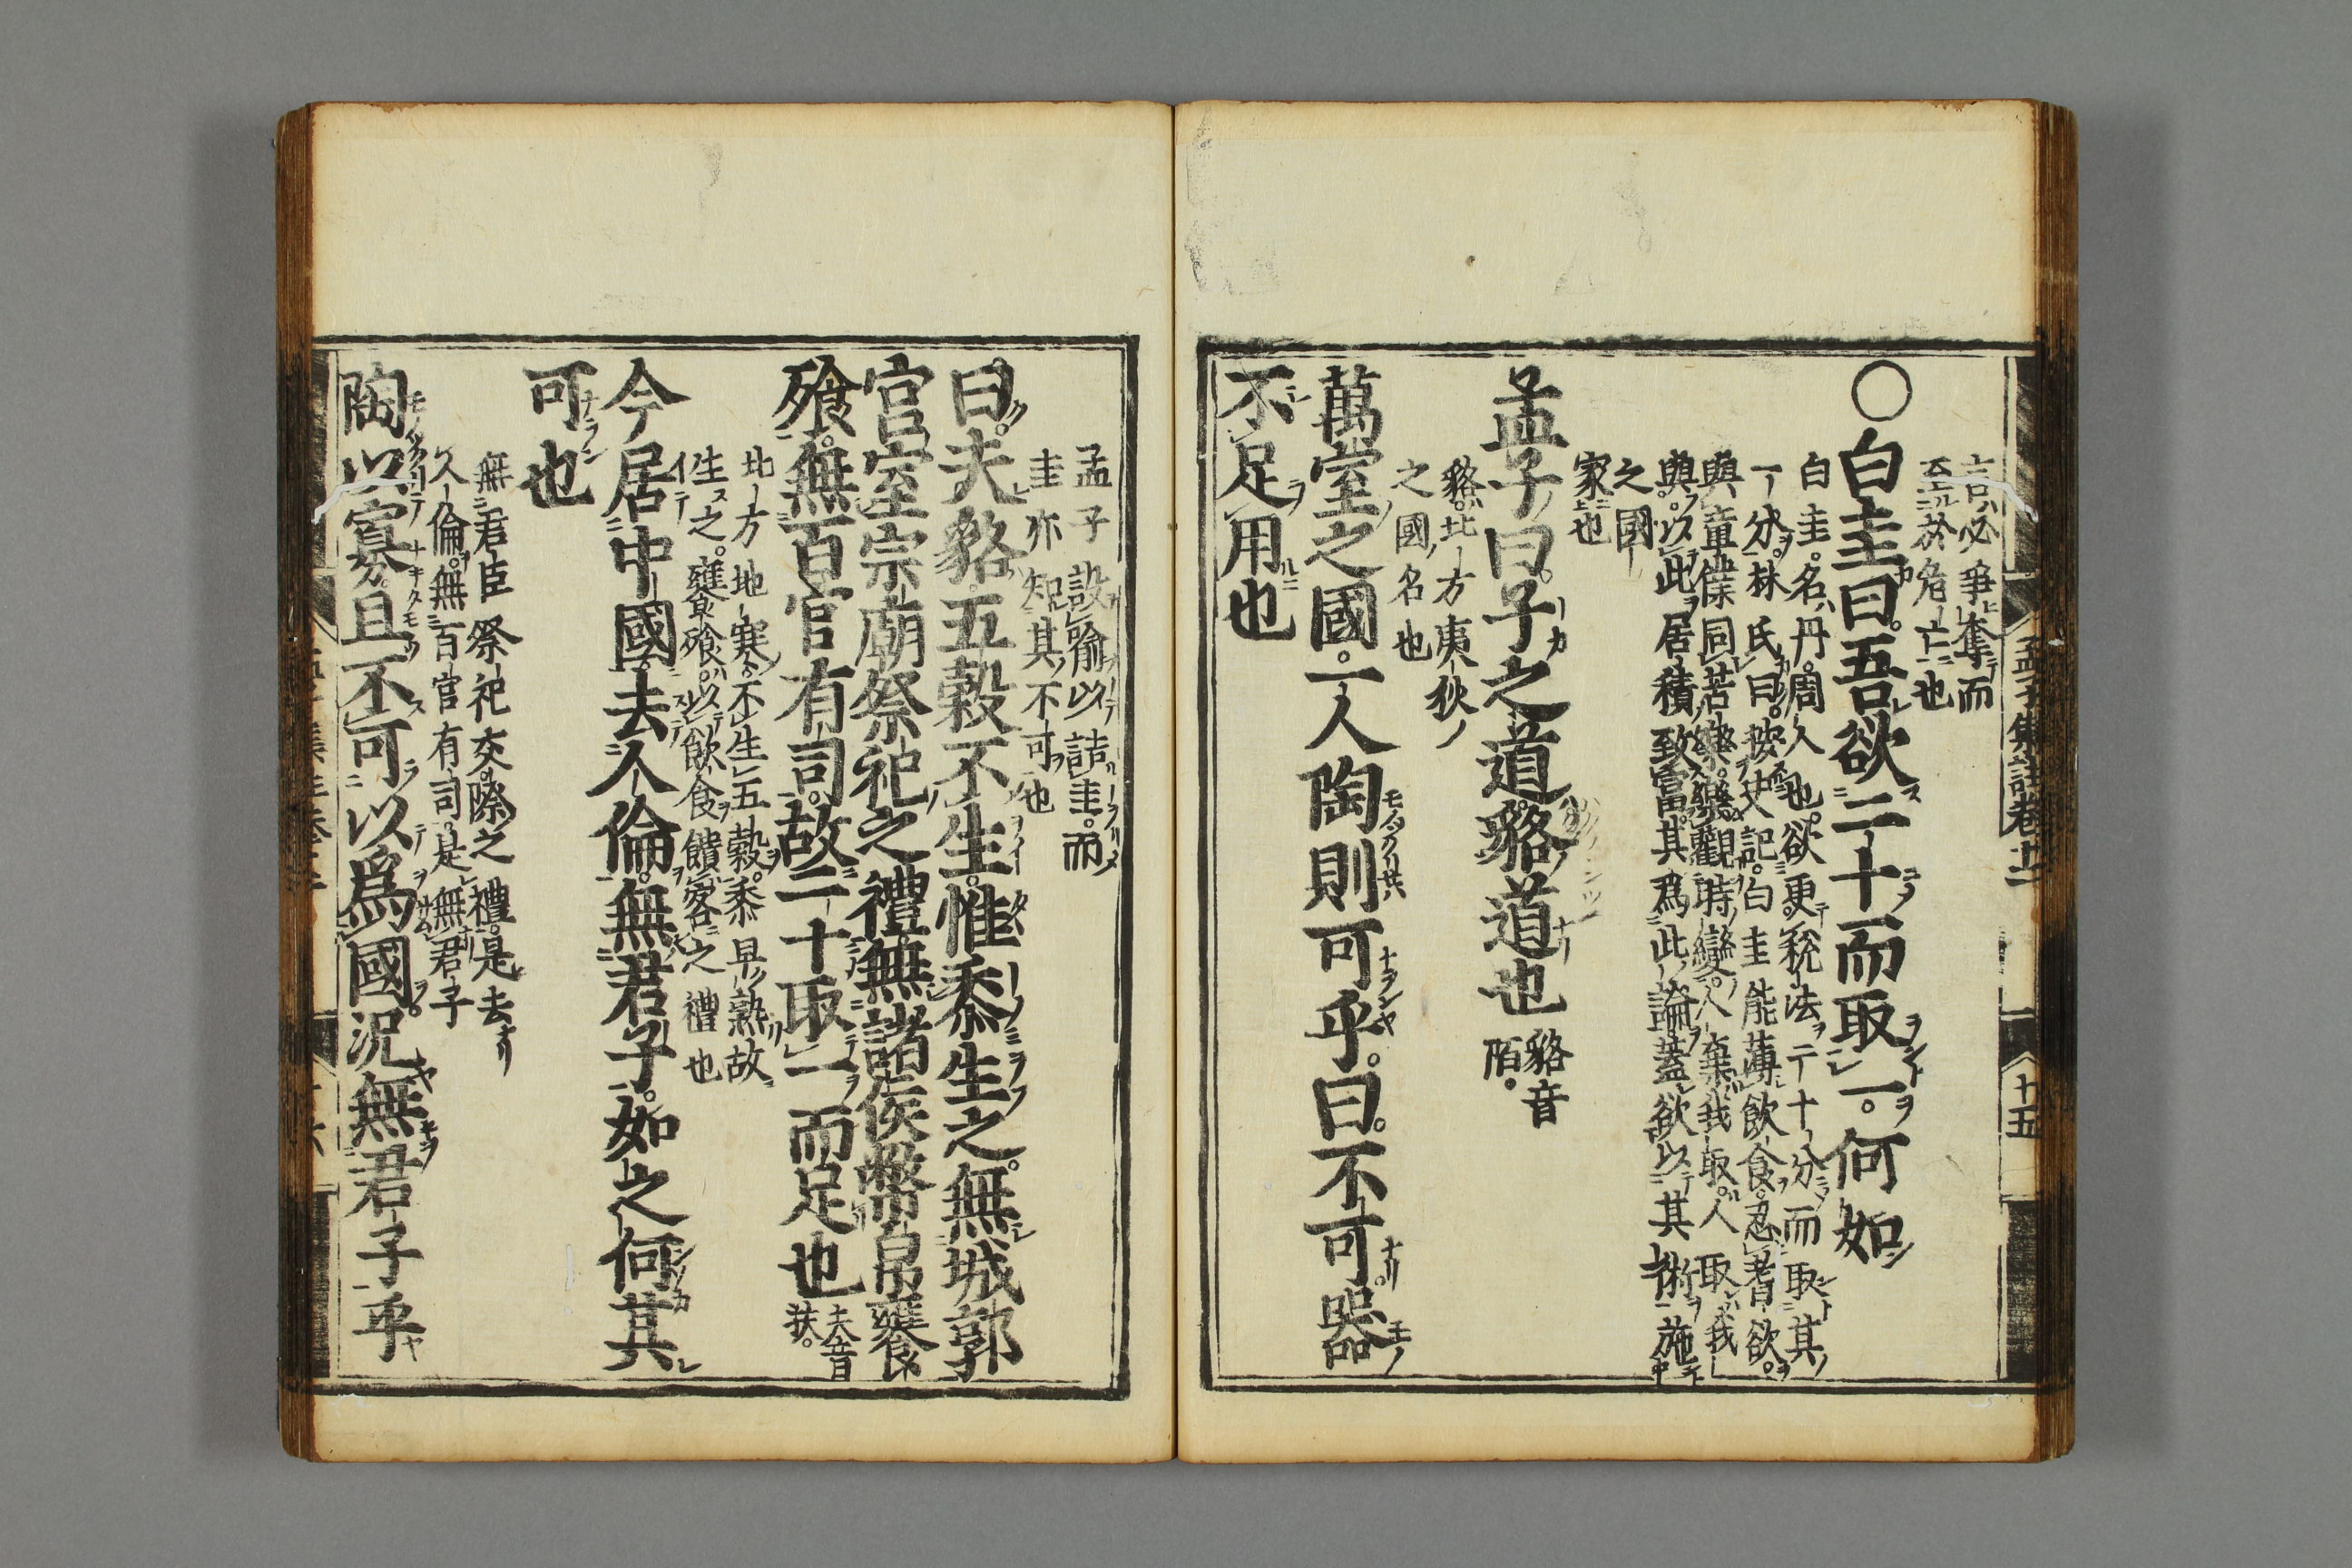 言必爭奪而
至於危亡也
○白圭曰吾欲二十而取一何如
白圭名丹周人也欲更稅法二十分而取其
一分林氏曰按史記白圭能薄飲食忍耆欲
與童僕同苦樂樂觀時變人棄我取人取我
與以此居積致富其爲此論蓋欲以其術施
之國
家也
孟子曰子之道貉道也貉音
陌
貉北方夷狄
之國名也
萬室之國一人陶則可乎曰不可器
不足用也
孟子集註卷十二
十五
孟子設喻以詰圭而
圭亦知其不可也
曰夫貉五穀不生惟黍生之無城郭
宮室宗廟祭祀之禮無諸侯幣帛饔
飧無百官有司故二十取一而足也夫音
扶
北方地寒不生五穀黍早熟故
生之饔飧以飲食饋客之禮也
今居中國去人倫無君子如之何其
可也
無君臣祭祀交際之禮是去
人倫無百官有司是無君子
陶以寡且不可以爲國況無君子乎